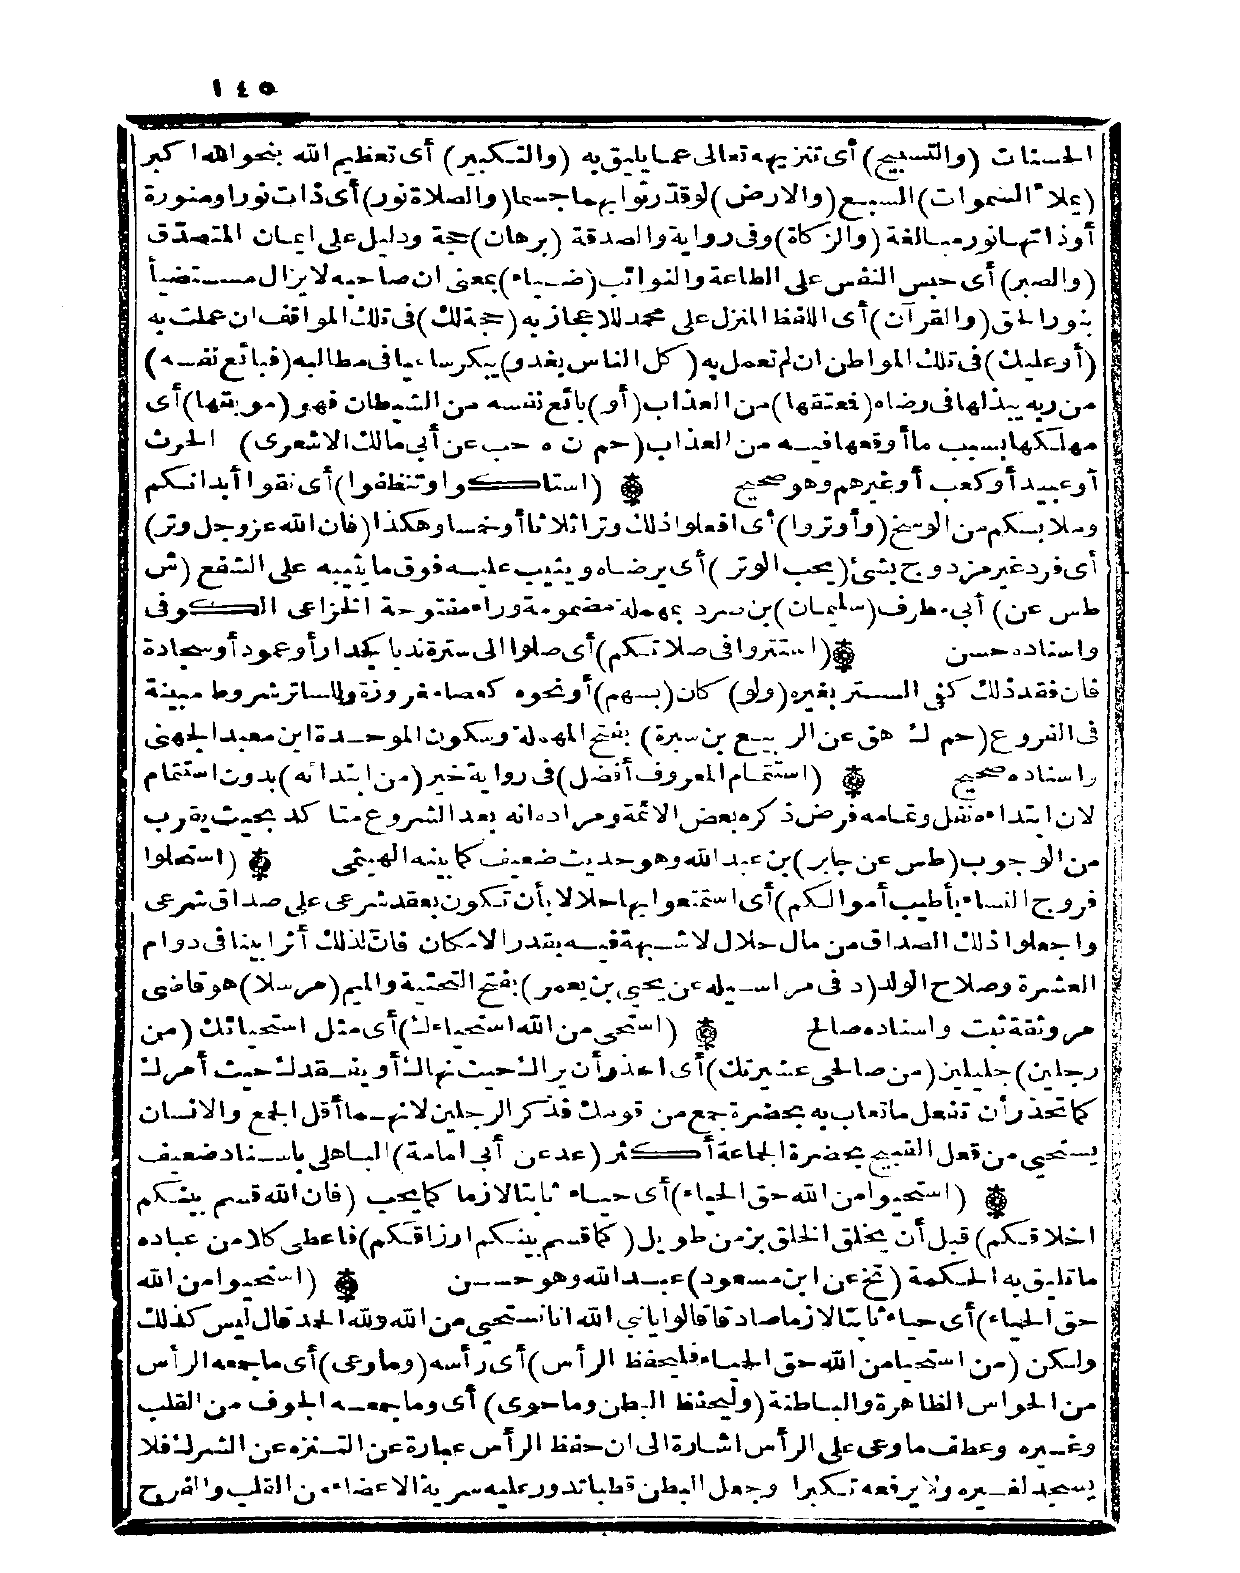 ١٤٥
الحسنات (والتسبيح) أى تنزيهه تعالى عما يليق به (والتكبير) أى تعظيم الله بنحو الله اكبر
(يملآ السموات) السبع (والارض) لو قدّر ثوابهما جسما (والصلاة نور) أى ذات نور او منورة
أو ذاتها نور مبالغة (والزكاة) وفى رواية والصدقة (برهان) حجة ودليل على ايمان المتصدّق
(والصبر) أى حبس النفس على الطاعة والنوائب (ضياء) بمعنى ان صاحبه لا يزال مستضيأ
بنور الحق (والقرآن) أى اللفظ المنزل على محمد للاعجاز به (حجة لك) فى تلك المواقف ان عملت به
(أو عليك) فى تلك المواطن ان لم تعمل به (كل الناس يغدو) يبكر ساعيا فى مطالبه (فبائع نفسه)
من ربه يبذلها فى رضاه (فمعتقها) من العذاب (أو) بائع نفسه من الشيطان فهو (موبقها) أى
مهلكها بسبب ما أوقعها فيه من العذاب (حم ن ه حب عن أبى مالك الاشعرى) الحرث
أو عبيد أو كعب أو غيرهم وهو صحيح ۞ (استاكوا وتنظفوا) أى نقوا أبدانكم
وملابسكم من الوسخ (وأوتروا) أى افعلوا ذلك وترا ثلاثا أو خمسا وهكذا (فان الله عز وجل وتر)
أى فرد غير مزدوج بشئ (يحب الوتر) أى يرضاه ويثيب عليه فوق ما يثيبه على الشفع (ش
طس عن) أبى مطرف (سليمان) بن صرد بمهملة مضمومة وراء مفتوحة الخزاعى الكوفى
واسناده حسن ۞ (استتروا فى صلاتكم) أى صلوا الى سترة ندبا كجدار أو عمود أو سجادة
فان فقد ذلك كفى الستر بغيره (ولو) كان (بسهم) أو نحوه كعصا مغروزة وللساتر شروط مبينة
فى الفروع (حم ك هق عن الربيع بن سبرة) بفتح المهملة وسكون الموحدة ابن معبد الجهنى
واسناده صحيح ۞ (استتمام المعروف أفضل) فى رواية خير (من ابتدائه) بدون استتمام
لان ابتداءه نفل وتمامه فرض ذكره بعض الائمة ومراده انه بعد الشروع متأكد بحيث يقرب
من الوجوب (طس عن جابر) بن عبد الله وهو حديث ضعيف كما بينه الهيتمى ۞ (استحلوا
فروج النساء بأطيب أموالكم) أى استمتعوا بها حلالا بأن تكون بعقد شرعى على صداق شرعى
واجعلوا ذلك الصداق من مال حلال لا شبهة فيه بقدر الامكان فان لذلك أثرا بينا فى دوام
العشرة وصلاح الولد (د فى مراسيله عن يحيى بن يعمر) بفتح التحتية والميم (مرسلا) هو قاضى
مرو ثقة ثبت واسناده صالح ۞ (استحى من الله استحياءك) أى مثل استحيائك (من
رجلين) جليلين (من صالحى عشيرتك) أى احذر أن يراك حيث نهاك أو يفقدك حيث أمرك
كما تحذر أن تفعل ما تعاب به بحضرة جمع من قومك فذكر الرجلين لانهما أقل الجمع والانسان
يستحيى من فعل القبيح بحضرة الجماعة أكثر (عد عن أبى امامة) الباهلى باسناد ضعيف
۞ (استحيوا من الله حق الحياء) أى حياء ثابتا لازما كما يحب (فان الله قسم بينكم
اخلاقكم) قبل أن يخلق الخلق بزمن طويل (كما قسم بينكم ارزاقكم) فاعطى كلا من عباده
ما تليق به الحكمة (تخ عن ابن مسعود) عبد الله وهو حسن ۞ (استحيوا من الله
حق الحياء) أى حياء ثابتا لازما صادقا قالوا يا نبى الله انا نستحيى من الله ولله الحمد قال ليس كذلك
ولكن (من استحيا من الله حق الحياء فليحفظ الرأس) أى رأسه (وما وعى) أى ما جمعه الرأس
من الحواس الظاهرة والباطنة (وليحفظ البطن وما حوى) أى وما يجمعه الجوف من القلب
وغيره وعطف ما وعى على الرأس اشارة الى ان حفظ الرأس عبارة عن التنزه عن الشرك فلا
يسجد لغيره ولا يرفعه تكبرا وجعل البطن قطبا تدور عليه سرية الاعضاء من القلب والفرج